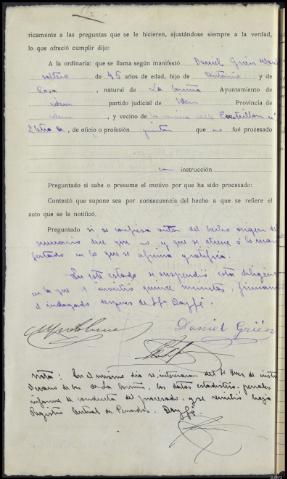 ricamente a las preguntas que se le hicieren, ajustándose siempre a la verdad,
lo que ofreció cumplir dijo:
A la ordinaria: que se llama según manifestó Daniel Grien
soltero de 45 años de edad, hijo de Antonio y de
Rosa, natural de La Coruña Ayuntamiento de
idem partido judicial de Idem Provincia de
idem y vecino de
de oficio o profesión pintor que no fué procesado
con instrucción
Preguntado si sabe o presume el motivo por que ha sido procesado:
Contestó que supone sea por consecuencia del hecho a que se refiere el
auto que se le notificó.
Preguntado si se confiesa autor del hecho origen del
sumario dice que no, y que se atiene a lo mani-
festado en lo que se afirma y ratifica.
En este estado se suspendió esta diligencia
en la que se invirtió quince minutos, firmando
el indagado después de SSª Doy fé.
Daniel Grién
Nota: En el mismo dia se interesan del Sr Juez de instr
Decano de los de La Coruña, los datos estadisticos, penales
informe de conducta del procesado, y se remitió hoja
Registro Central de Penados. Doy fé.